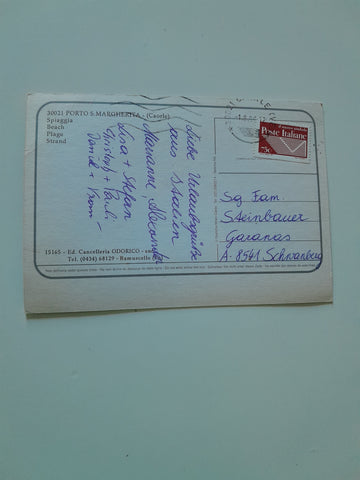 30021 PORTO S. MARGHERITA - (Caorle)
Spiaggia
Beach
Plage
Strand
Liebe Urlaubsgrüße
aus Italien
Marianne,
Lisa + Stefan
Christoph + Pauli
David +
15165 - Ed. Cancelleria ODORICO -
Tel. (0434) 68129 - Ramuscello
Poste Italiane
Sg. Fam.
Steinbauer
Garanas
A-8541 Schwanberg